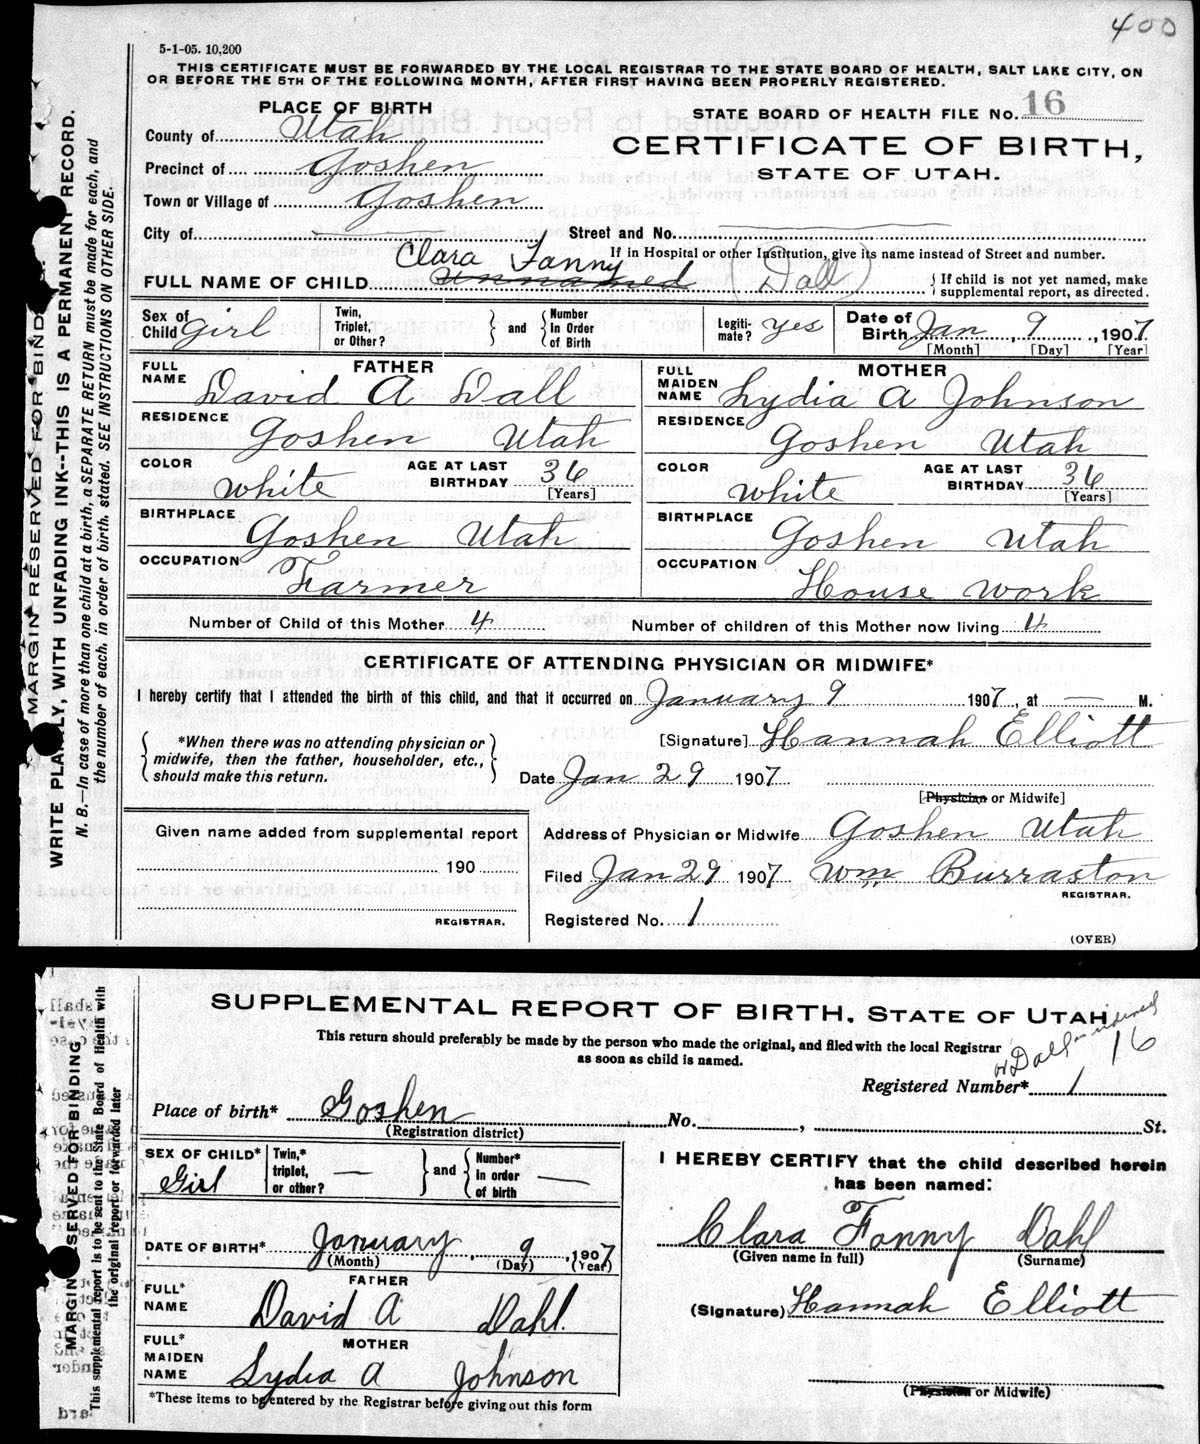 400
5-1-05. 10,200
THIS CERTIFICATE MUST BE FORWARDED BY THE LOCAL REGISTRAR TO THE STATE BOARD OF HEALTH, SALT LAKE CITY, ON
OR BEFORE THE 5TH OF THE FOLLOWING MONTH, AFTER FIRST HAVING BEEN PROPERLY REGISTERED.
PLACE OF BIRTH
STATE BOARD OF HEALTH FILE No. 16
County of Utah
CERTIFICATE OF BIRTH,
Precinct of Goshen
STATE OF UTAH.
Town or Village of Goshen
City of Street and No.
If in Hospital or other Institution, give its name instead of Street and number.
Clara Fanny
FULL NAME OF CHILD Unnamed (Dall)
{If child is not yet named, make
supplemental report, as directed.
Sex of Child girl
Twin, Triplet, or Other? } and { Number In Order of Birth
Legitimate? yes
Date of Birth Jan 9, 1907
[Month] [Day] [Year]
FATHER
FULL NAME David A Dall
RESIDENCE Goshen Utah
COLOR white AGE AT LAST BIRTHDAY 36 [Years]
BIRTHPLACE Goshen Utah
OCCUPATION Farmer
MOTHER
FULL MAIDEN NAME Lydia A Johnson
RESIDENCE Goshen Utah
COLOR white AGE AT LAST BIRTHDAY 36 [Years]
BIRTHPLACE Goshen Utah
OCCUPATION House work
Number of Child of this Mother 4 Number of children of this Mother now living 4
CERTIFICATE OF ATTENDING PHYSICIAN OR MIDWIFE*
I hereby certify that I attended the birth of this child, and that it occurred on January 9 1907, at — M.
{*When there was no attending physician or
midwife, then the father, householder, etc.,
should make this return.}
[Signature] Hannah Elliott
Date Jan 29 1907
[Physician or Midwife]
Given name added from supplemental report
190
REGISTRAR.
Address of Physician or Midwife Goshen Utah
Filed Jan 29 1907 Wm Burraston
REGISTRAR.
Registered No. 1
(OVER)
MARGIN RESERVED FOR BINDING.
WRITE PLAINLY, WITH UNFADING INK--THIS IS A PERMANENT RECORD.
N. B.—In case of more than one child at a birth, a SEPARATE RETURN must be made for each, and
the number of each, in order of birth, stated. SEE INSTRUCTIONS ON OTHER SIDE.
SUPPLEMENTAL REPORT OF BIRTH, STATE OF UTAH
This return should preferably be made by the person who made the original, and filed with the local Registrar
as soon as child is named.
or Dall
16
Registered Number* 1
Place of birth* Goshen No. , St.
(Registration district)
SEX OF CHILD* Girl
Twin,* triplet, or other? — } and { Number* In order of birth —
DATE OF BIRTH* January, 9, 1907
(Month) (Day) (Year)
FATHER
FULL* NAME David A Dahl.
MOTHER
FULL* MAIDEN NAME Lydia A Johnson
*These items to be entered by the Registrar before giving out this form
I HEREBY CERTIFY that the child described herein
has been named:
Clara Fanny Dahl
(Given name in full) (Surname)
(Signature) Hannah Elliott
(Physician or Midwife)
MARGIN RESERVED FOR BINDING
This supplemental report is to be sent to the State Board of Health with
the original report or forwarded later